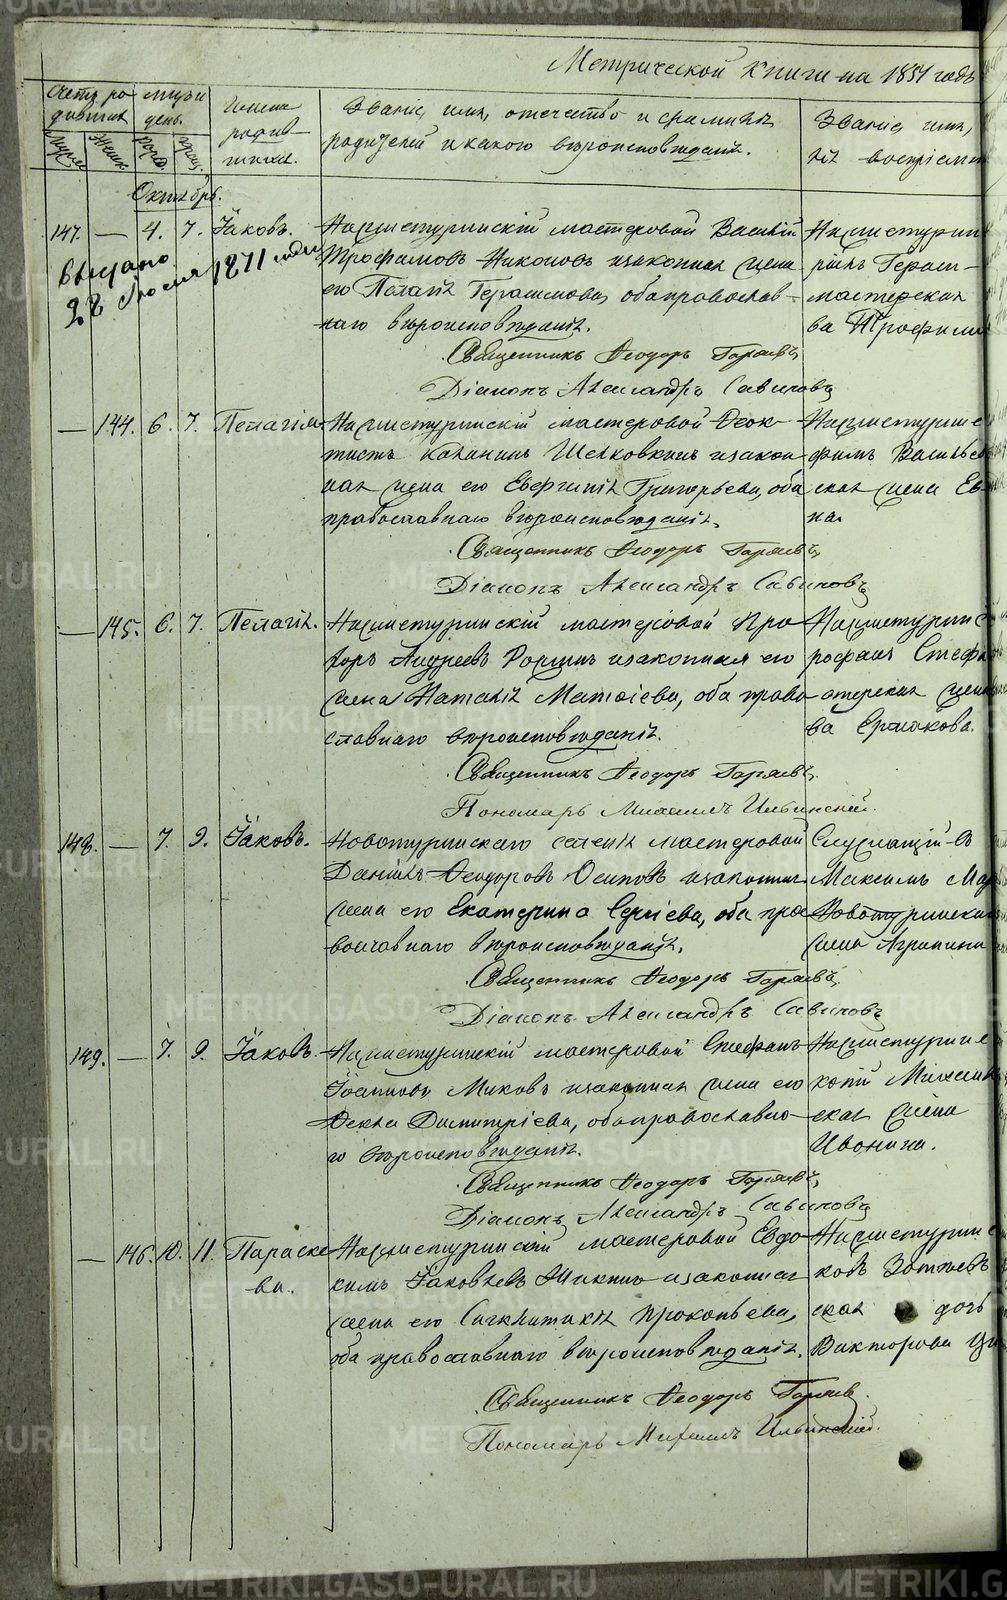 Метрической книги на 1851 годъ
Счетъ ро
дившихся
Муж.
Женс.
месяцъ и
день.
рожд.
крещ.
Имена
родив
шихся.
Званіе, имя, отчество и фамилія
родителей и какого вѣроисповѣданія.
Званіе, имя,
лія воспріемни
Октябрь.
147. — 4. 7. Іаковъ.
Выдано
28 1871 года
Нижнетуринскій мастеровой Василій
Трофимовъ Никоновъ и законная жена
его Пелагія Герасимова, оба православ-
наго вѣроисповѣданія.
Священникъ Ѳеодоръ Горяевъ
Діаконъ Александръ Савиновъ
Нижнетурин
мастерская
ва Трофимо
— 144. 6. 7. Пелагія
Нижнетуринскій мастеровой Ѳеок-
тистъ Шелковкинъ и закон
ная жена его Евгенія Григорьева, оба
православнаго вѣроисповѣданія.
Священникъ Ѳеодоръ Горяевъ
Діаконъ Александръ Савиновъ
Нижнетуринс
фимъ Васильев
ская жена Ев
на
— 145. 6. 7. Пелагія.
Нижнетуринскій мастеровой Про
хоръ Андреевъ и законная его
жена Наталія Матѳіева, оба право
славнаго вѣроисповѣданія.
Священникъ Ѳеодоръ Горяевъ
Пономарь Михаилъ Ильинскій.
Нижнетуринс
рофанъ Стефа
стерская жена
ва Ермакова.
148. — 7. 9. Іаковъ.
Новотуринскаго селенія мастеровой
Даніилъ Ѳеодоровъ Осиповъ и законная
жена его Екатерина Сергіева, оба пра
вославнаго вѣроисповѣданія.
Священникъ Ѳеодоръ Горяевъ
Діаконъ Александръ Савиновъ
Служащій
Максимъ Ма
Новотуринская
жена Агрипина
149. — 7. 9. Іаковъ.
Нижнетуринскій мастеровой Стефанъ
Іоанновъ Миковъ и законная жена его
Ѳекла Димитріева, оба православна-
го вѣроисповѣданія.
Священникъ Ѳеодоръ Горяевъ
Діаконъ Александръ Савиновъ
Нижнетуринс
кій Михаил
ская жена
Ивонина.
— 146. 10. 11. Параске
ва.
Нижнетуринскій мастеровой Евдо
кимъ Іаковлевъ Микинъ и законная
жена его Сигклитикія Прокопьева,
оба православнаго вѣроисповѣданія.
Священникъ Ѳеодоръ Горяевъ.
Пономарь Михаилъ Ильинскій.
Нижнетуринс
ковъ Зотѣевъ
ская дочь
Викторова
METRIKI.GASO-URAL.RU